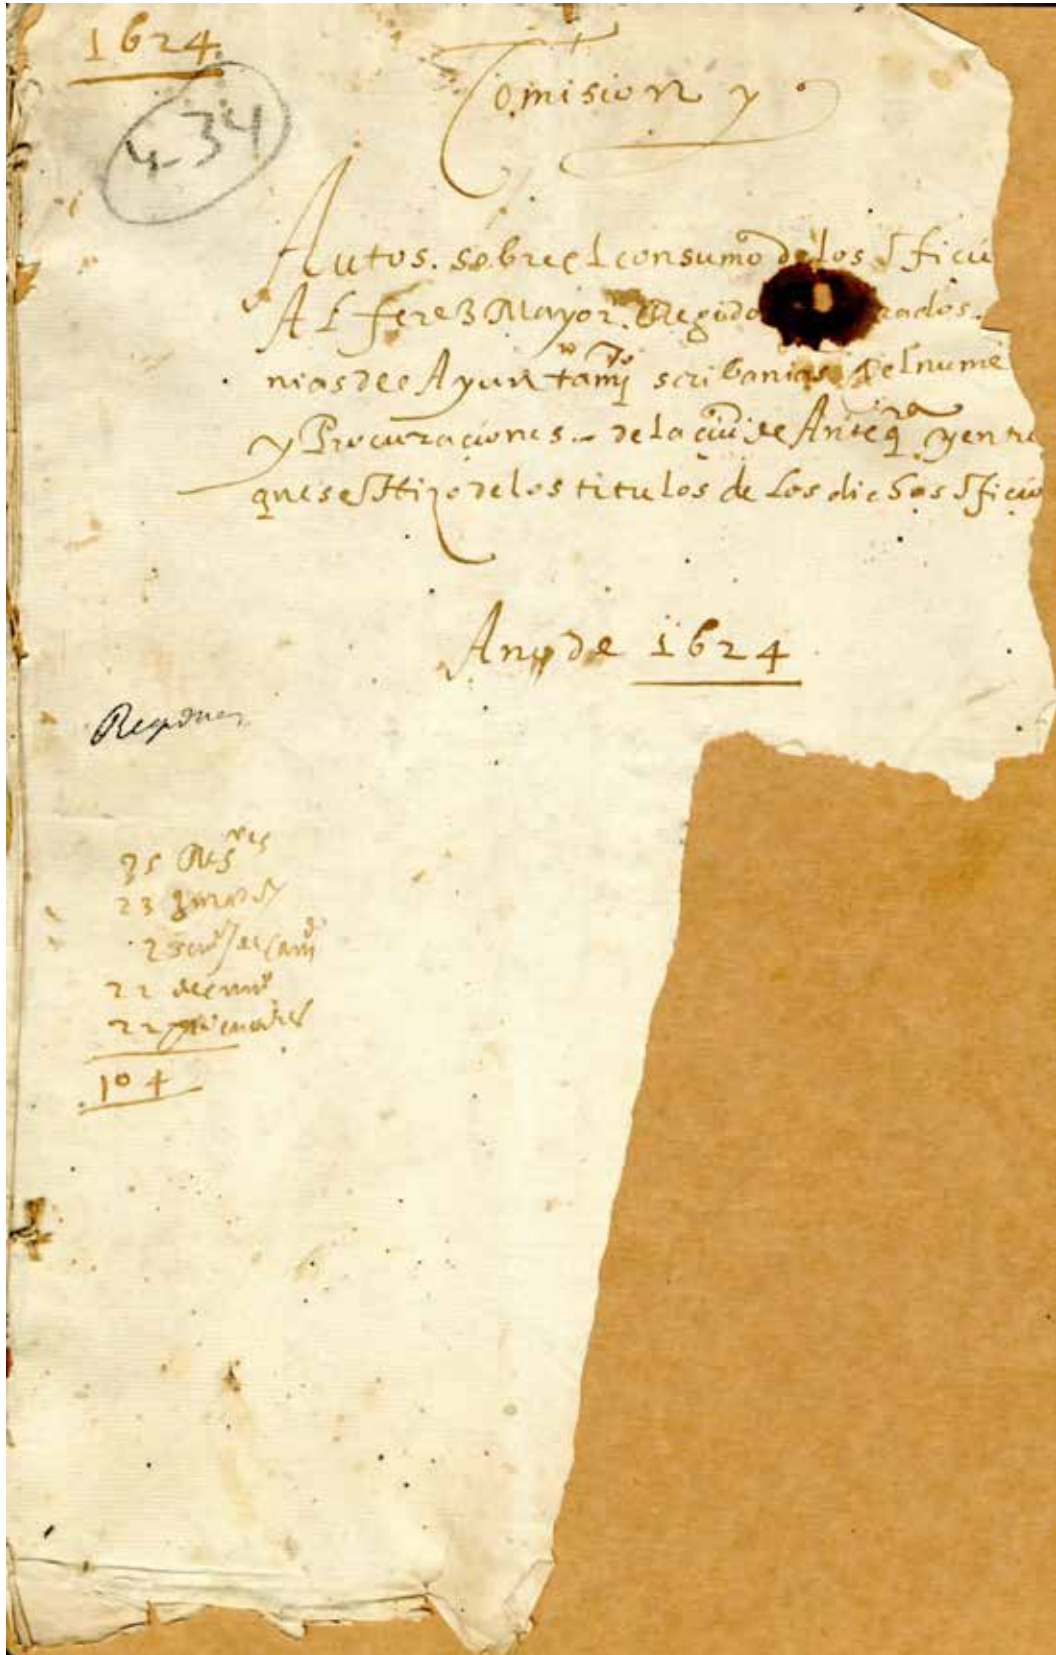 1624
4-34
Comision y
Autos. sobre el consumo de los Oficio
Alferez Mayor. Regido rados.
nias dee Ayuntamj.to scribanias del nume
y Procuraciones - de la ciu.d de Anteq.ra y entre
que se Hizo de los titulos de Los dichos Oficio
Ano de 1624
35 Reg.res
23 jurados
2 scri.s de Cav.o
22 del num.o
22 procuradores
104